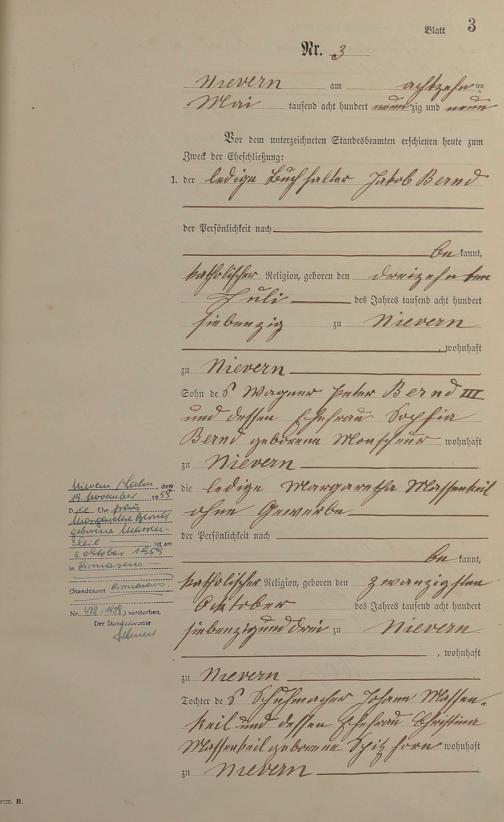 Blatt 3
Nr. 3
Nievern am achtzehnten
Mai tausend acht hundert neunzig und neun
Vor dem unterzeichneten Standesbeamten erschienen heute zum
Zweck der Eheschließung:
1. der ledige Buchhalter Jakob Bernd
der Persönlichkeit nach
bekannt,
katholischer Religion, geboren den dreizehnten
Juli des Jahres tausend acht hundert
siebenzig zu Nievern
, wohnhaft
zu Nievern
Sohn des Wagner Peter Bernd III
und dessen Ehefrau Sophia
Bernd geborene Monscheur wohnhaft
zu Nievern
die ledige Margaretha Massenkeil
ohne Gewerbe
der Persönlichkeit nach
bekannt,
katholischer Religion, geboren den zwanzigsten
Oktober des Jahres tausend acht hundert
siebenzig und drei zu Nievern
, wohnhaft
zu Nievern
Tochter des Schuhmacher Johann Massen-
keil und dessen Ehefrau Christina
Massenkeil geborene Spitzhorn wohnhaft
zu Nievern
Nievern, den
19. November 1958
Die Ehefrau
Margaretha Bernd
geborene Massen-
keil ist am
5. Oktober
in Pirmasens
(Standesamt Pirmasens
Nr. verstorben.
Der Standesbeamte
B.